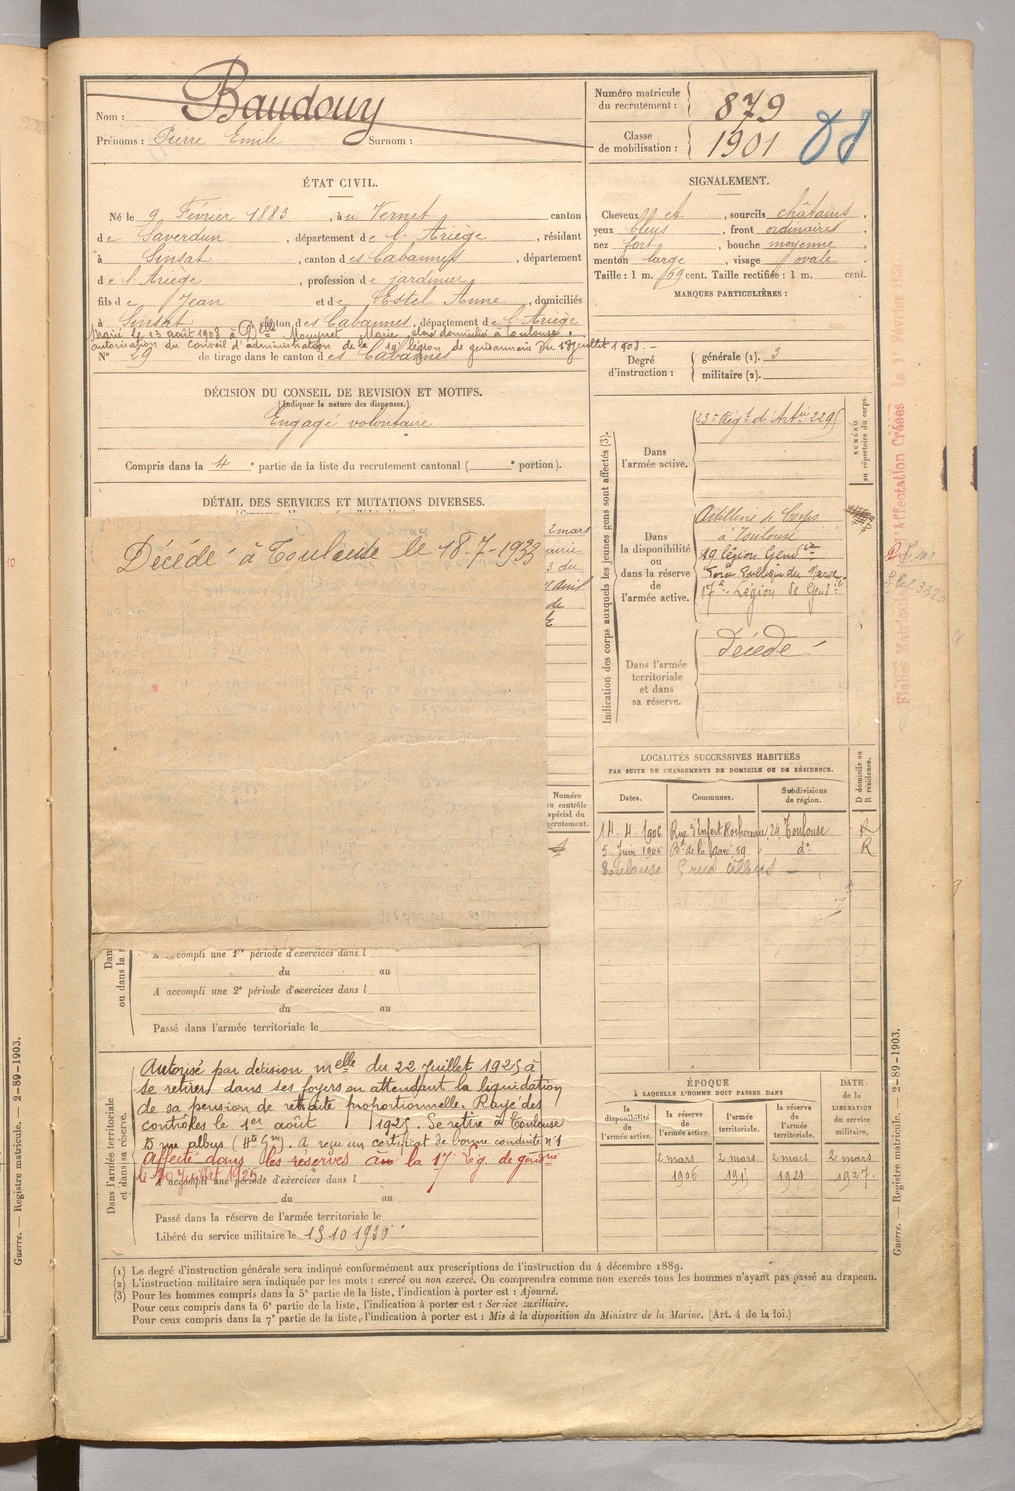 Nom : Baudouy
Prénoms : Pierre Emile Surnom :
Numéro matricule du recrutement : 879
Classe de mobilisation : 1901
ÉTAT CIVIL.
Né le 9 Février 1883, à u Vernet canton
de Saverdun, département de l'Ariège, résidant
à Sinsat, canton des Cabannes, département
de l'Ariège profession de jardinier
fils de Jean et de Estel Anne, domiciliés
à Sinsat canton des Cabannes, département de l'Ariège
Marié le 13 août 1908 à Delle Mouynet Marie domicilié à Toulouse.
autorisation du Conseil d'administration de la légion de gendarmerie du juillet 1908.
N° 29 de tirage dans le canton des Cabannes
SIGNALEMENT.
Cheveux et, sourcils châtains,
yeux bleus, front ordinaires,
nez fort, bouche moyenne,
menton large, visage ovale.
Taille : 1 m. 69 cent. Taille rectifiée : 1 m. cent.
MARQUES PARTICULIÈRES :
Degré d'instruction : générale (1). 3
militaire (2).
DÉCISION DU CONSEIL DE REVISION ET MOTIFS.
(Indiquer la nature des dispenses.)
Engagé volontaire
Compris dans la 4e partie de la liste du recrutement cantonal ( e portion).
DÉTAIL DES SERVICES ET MUTATIONS DIVERSES.
Décédé à Toulouse le 18-7-1933
2 mars
du
avril
de
Numéro
au contrôle
spécial du
recrutement.
Indication des corps auxquels les jeunes gens sont affectés (3).
NUMÉRO
au répertoire du corps.
Dans
l'armée active.
23e Régt d'Artie 2295
Dans
la disponibilité
ou
dans la réserve
de
l'armée active.
Artillerie de Corps
à Toulouse
19 légion Gendie
Force Publique du Maroc.
17e Légion de Gendie
Dans l'armée
territoriale
et dans
sa réserve.
Décédé
Fiches Matricules d'Affectation Créées le 1er Février
LOCALITÉS SUCCESSIVES HABITÉES
PAR SUITE DE CHANGEMENTS DE DOMICILE OU DE RÉSIDENCE.
Dates. Communes. Subdivisions de région. D domicile ou R résidence.
14. 4. 1906 Rue Denfert Rochereau, 24 Toulouse R
5 Juin 1906 Bd de la Gare 59 do R
Toulouse 5 rue Albus
Dans
ou dans la
A accompli une 1re période d'exercices dans l
du au
A accompli une 2e période d'exercices dans l
du au
Passé dans l'armée territoriale le
Dans l'armée territoriale
et dans sa réserve.
Autorisé par décision melle du 22 Juillet 1925 à
se retirer dans ses foyers en attendant la liquidation
de sa pension de retraite proportionnelle. Rayé des
contrôles le 1er août 1925. Se retire à Toulouse
5 rue albus (Hte Gne). A reçu un certificat de bonne conduite n°1
Affecté dans les réserves à la 17e lég. de gendrie
le Juillet 1925
A accompli une période d'exercices dans l
du au
Passé dans la réserve de l'armée territoriale le
Libéré du service militaire le 15 10 1930
ÉPOQUE
À LAQUELLE L'HOMME DOIT PASSER DANS
DATE
DE LA
LIBÉRATION
du service
militaire.
la disponibilité de l'armée active. la réserve de l'armée active. l'armée territoriale. la réserve de l'armée territoriale.
2 mars 2 mars 2 mars 2 mars
1906 1915 1921 1927.
(1) Le degré d'instruction générale sera indiqué conformément aux prescriptions de l'instruction du 4 décembre 1889.
(2) L'instruction militaire sera indiquée par les mots : exercé ou non exercé. On comprendra comme non exercés tous les hommes n'ayant pas passé au drapeau.
(3) Pour les hommes compris dans la 5e partie de la liste, l'indication à porter est : Ajourné.
Pour ceux compris dans la 6e partie de la liste, l'indication à porter est : Service auxiliaire.
Pour ceux compris dans la 7e partie de la liste, l'indication à porter est : Mis à la disposition du Ministre de la Marine. (Art. 4 de la loi.)
Guerre. — Registre matricule. — 2-89-1903.
Guerre. — Registre matricule. — 2-89-1903.